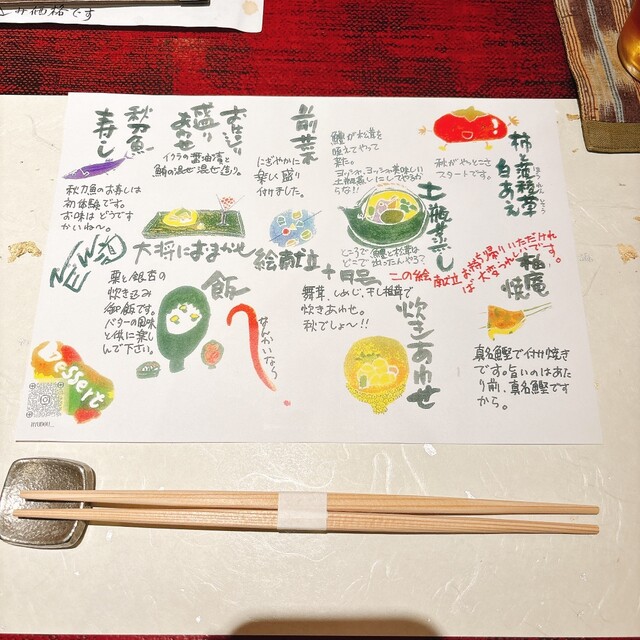 み価格です
柿と菠薐草
ほうれんそう
白あえ
秋がやっとこさ
スタートです。
土瓶蒸し
鱧が松茸を
咥えてやって
来た。
ヨッシャ、ヨッシャ、美味しい
土瓶蒸しにしてやるか
らな!!
ところで、鱧と松茸は
どこで出ったんやろ?
前菜
にぎやかに
楽しい盛り
付けました。
おはこり
盛り
あわせ
イクラの醤油漬と
鮪の混ぜ混ぜ造り。
秋刀魚
寿し
秋刀魚のお寿しは
初体験です。
お味はどうです
かいね〜。
NEW
大将におまかせ
絵献立
十月号
この絵献立お持ち帰りいただけれ
ば大変うれしいです。
柚庵
焼
真名鰹で付け焼き
です。旨いのはあた
り前、真名鰹です
から。
炊きあわせ
舞茸、しめじ、干し椎茸で
炊きあわせ。
秋でしょ〜!!
飯
栗と銀杏の
炊き込み
御飯です。
バターの風味
と供に楽し
んで下さい。
なんかいなぅ
Dessert